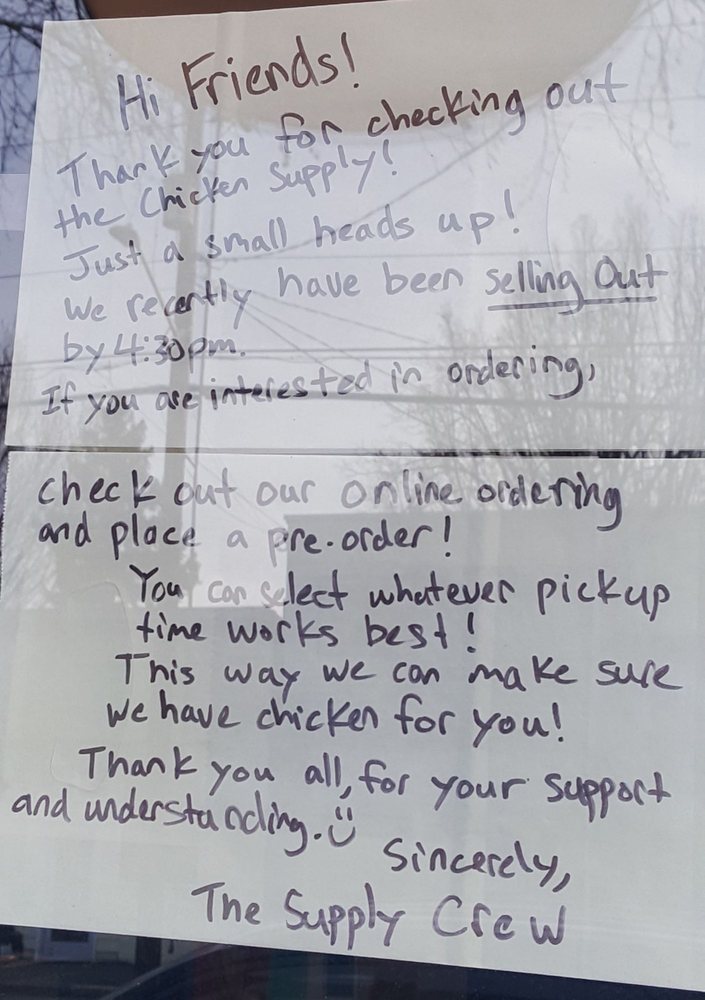 Hi Friends!
Thank you for checking out
the Chicken Supply!
Just a small heads up!
We recently have been selling Out
by 4:30pm.
If you are interested in ordering,
check out our online ordering
and place a pre-order!
You can select whatever pickup
time works best!
This way we can make sure
we have chicken for you!
Thank you all, for your support
and understanding. :)
Sincerely,
The Supply Crew